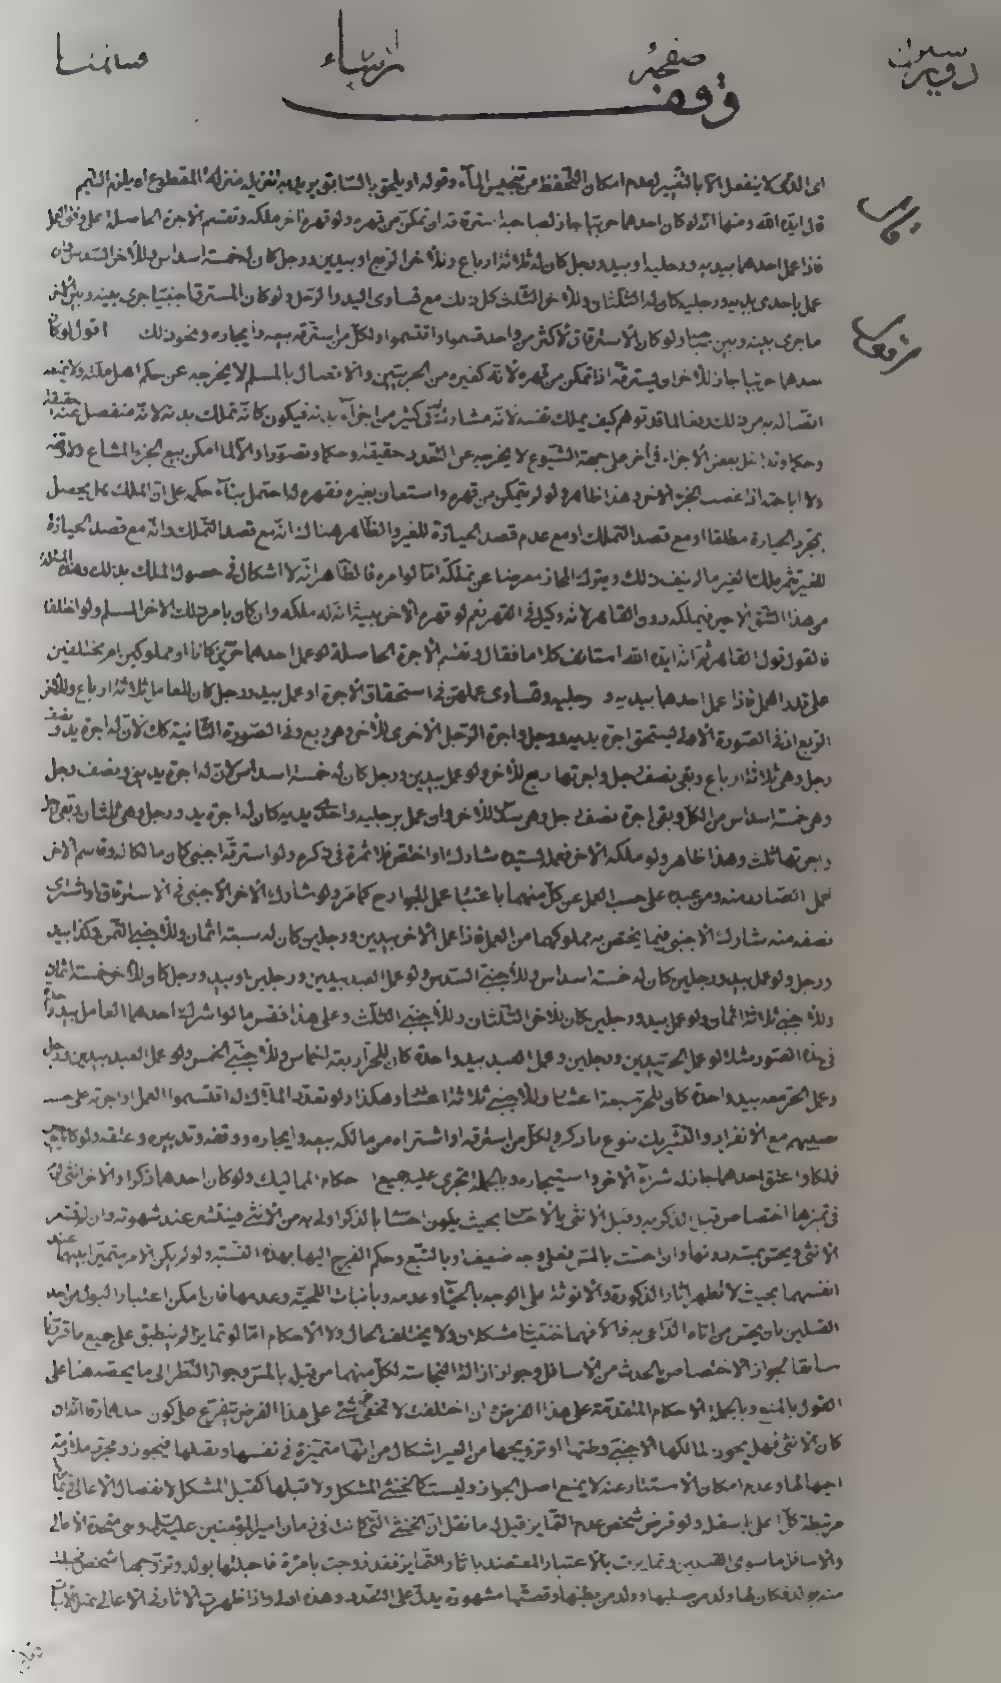 صفحهٔ
وقف
اى الذى لا ينفعل الا بالتغيير لعدم امكان التحفظ من تنجيس الماء وقوله او يلحق بالسابق يريد به تنزيله منزلة المقطوع اه يلزم التيمم
قال ايده الله ومنها انه لو كان احدهما حربيا جاز لصاحبه استرقاقه ان تمكن من قهره ولو قهره اخر ملكه وتقسم الاجرة الحاصلة على وفق العمل
فاذا عمل احدهما بيديه ورجليه او بيد ورجل كان له ثلاثة ارباع وللاخر الربع او بيدين ورجل كان له خمسة اسداس وللاخر السدس وان
عمل باحدى يديه ورجليه كان له الثلثان وللاخر الثلث كل ذلك مع تساوى اليد والرجل ولو كان المسترق اجنبيا جرى بينه وبين الاخر
ما جرى بينه وبين ولو كان الاسترقاق لاكثر من واحد قسموا واقتسموا ولكل من استرقه بيعه وايجاره ونحو ذلك اقول لو كان
احدهما حربيا جاز للاخر ان يسترقه اذا تمكن من قهره لانه كغيره من الحربيين والاتصال بالمسلم لا يخرجه عن حكم اهل ملته ولا يمنع
اتصاله به من ذلك دفعا لما قد توهم كيف يملك نفسه لانه مشارك له فى كثير من اجزاء بدنه فيكون كانه تملك بدنه لانه منفصل عنه حقيقة
وحكما وتداخل بعض الاجزاء فى اخر على جهة الشيوع لا يخرجه عن التعدد حقيقة وحكما وتصورا والا لما امكن بيع الجزء المشاع ولا وقفه
ولا اباحته اذا غصب الجزء الاخر وهذا ظاهر ولو لم يتمكن من قهره واستعان بغيره فقهره له احتمل بناء حكمه على ان الملك هل يحصل
بمجرد الحيازة مطلقا او مع قصد التملك او مع عدم قصد الحيازة للغير والظاهر هناك انه مع قصد التملك وانه مع قصد الحيازة
للغير يثمر ملك الغير ما لم ينف ذلك ويترك المحاز معرضا عن تملكه اما لو امره فالظاهر انه لا اشكال فى حصول الملك بذلك وهذه المسئلة
من هذا الشق الاخير فيملكه دون القاهر لانه وكيل فى القهر نعم لو قهره الاخر بنية انه له ملكه وان كان بامر ذلك الاخر المسلم ولو اختلفا
فالقول قول القاهر ثم انه ايده الله استانف كلاما فقال وتقسم الاجرة الحاصلة لو عمل احدهما حرين كانا او مملوكين او مختلفين
على قدر العمل فاذا عمل احدهما بيديه ورجليه وتساوى عملهن فى استحقاق الاجرة او عمل بيد ورجل كان للعامل ثلاثة ارباع وللاخر
الربع اذ فى الصورة الاولى يستحق اجرة يديه ورجل واجرة الرجل الاخرى للاخر وهى ربع وفى الصورة الثانية كك لان له اجرة يد ونصف
رجل وهى ثلاثة ارباع وبقى نصف رجل واجرتها ربع للاخر ولو عمل بيدين ورجل كان له خمسة اسداس لان له اجرة يدين ونصف رجل
وهى خمسة اسداس من الكل وبقى اجرة نصف رجل وهى سدس للاخر وان عمل برجليه واحدى يديه كان له اجرة يد ورجل وهى الثلثان وبقى رجل
واجرتها ثلث وهذا ظاهر ولو ملكه الاخر فعمله لسيده شاركه او اختص فلا ثمرة فى ذكره ولو استرقه اجنبى كان مالكا له وقاسم الاخر
العمل الصادر منه ومن عبده على حسب العمل عن كل منهما باعتبار عمل الجوارح كما مر ولو شارك الاخر الاجنبى فى الاسترقاق او اشترى
نصفه منه شارك الاجنبى فيما يختص به مملوكهما من العمل فاذا عمل الاخر بيدين ورجلين كان له سبعة اثمان وللاجنبى الثمن وكذا بيد
ورجل ولو عمل بيد ورجلين كان له خمسة اسداس وللاجنبى السدس ولو عمل العبد بيدين ورجلين او بيد ورجل كان للاخر خمسة اثمان
وللاجنبى ثلاثة اثمان ولو عمل بيد ورجلين كان للاخر الثلثان وللاجنبى الثلث وعلى هذا فقس ما لو اشرك احدهما العامل بيد واحدة
فى هذه الصور مثلا لو عمل الحر بيدين ورجلين وعمل العبد بيد واحدة كان للحر اربعة اخماس وللاجنبى الخمس ولو عمل العبد بيدين ورجل
وعمل الحر معه بيد واحدة كان للحر سبعة اعشار وللاجنبى ثلاثة اعشار وهكذا ولو تعدد الملاك له اقتسموا العمل او اجرته على حسب
حصصهم مع الانفراد والتشريك بنوع ما ذكر ولكل من استرقه او اشتراه من مالكه بيعه وايجاره ووقفه وتدبيره وعتقه ولو كانا
فلكا واعتق احدهما جاز له شراء الاخر واستيجاره وبالجملة تجرى عليه جميع احكام المماليك ولو كان احدهما ذكرا والاخر انثى
فى تمزها اختصاص قبل الذكر به وقبل الانثى بالاحساس بحيث يكون احساسا بالذكر اولى به من الانثى فينتشر عند شهوته دون
الانثى ويحس بمسه دونها وان احست بالمس فعلى وجه ضعيف او بالتبع وحكم الفرج اليها بهذه النسبة ولو لم يكن الامر متميزا بينهما عند
انفسهما بحيث لا تظهر اثار الذكورة والانوثة على الوجه بالحياء وعدمه وبانبات اللحية وعدمها فان امكن اعتبار البول من احد
القبلين بان يحس من اتاه الداعى به فالا فهما خنثيان مشكلان ولا يختلف الحال ولا الاحكام اما لو تمايزا لم ينطبق على جميع ما قررنا
سابقا لجواز الاختصاص بالحدث من الاسافل وجواز ازالة النجاسة لكل منهما من قبل بالمس وجواز النظر الى ما يخصه هنا على
القول بالمنع وبالجملة الاحكام المتقدمة على هذا الفرض ان اختلفت لا تخفى ثم على هذا الفرض يتفرع على كون احدهما رقا انه ان
كان الانثى فهل يجوز لمالكها الاجنبى وطئها او تزويجها من الغير اشكال من انها متميزة فى نفسها وبقبلها فيجوز ومجرد ملازمة
اجهالها وعدم امكان الاستتار عنه لا يمنع اصل الجواز وليست كالخنثى المشكل ولا قبلها كقبل المشكل لانفصال الاعالى
مرتبطة كل اعلى باسفل ولو فرض شخص عدم التمايز قبل له ما نقل ان الخنثى التى كانت فى زمان امير المؤمنين عليه السلام وهى متحدة الاعالى
والاسافل ما سوى القبلين وتمايزت بالاعتبار المعتضد باثار التمايز فقد زوجت بامرة فاحبلتها بولد وتزوجها شخص فحملت
منه بولد فكان لها ولد من صلبها وولد من بطنها وقصتها مشهورة يدل على التعدد وهذه اولى واذا ظهرت الاثار فى الاعالى